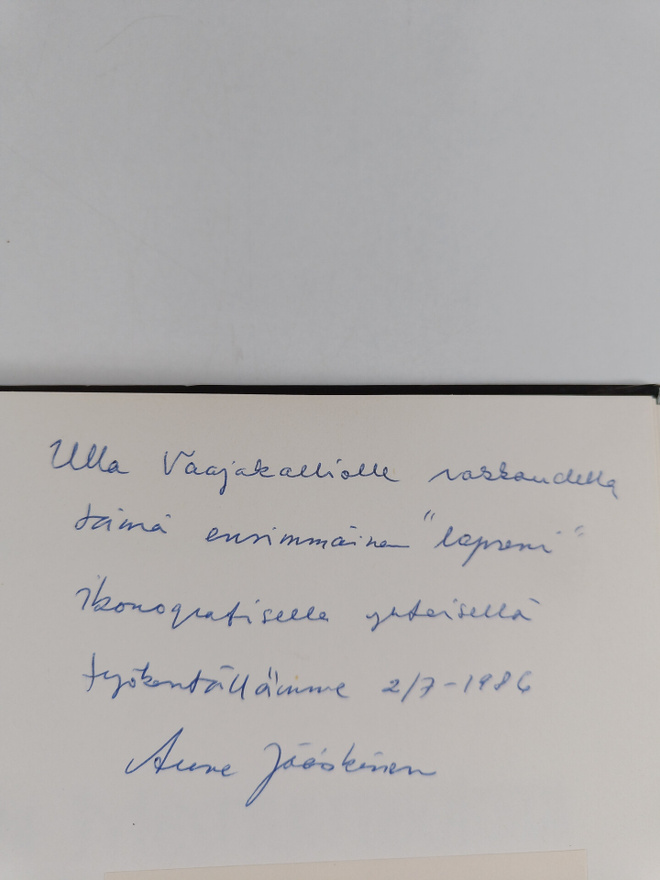 Ulla Vaajakalliolle rakkaudella
tämä ensimmäinen "lapseni"
ikonografisella yhteisellä
työkentällämme 2/7-1986
Aune Jääskinen